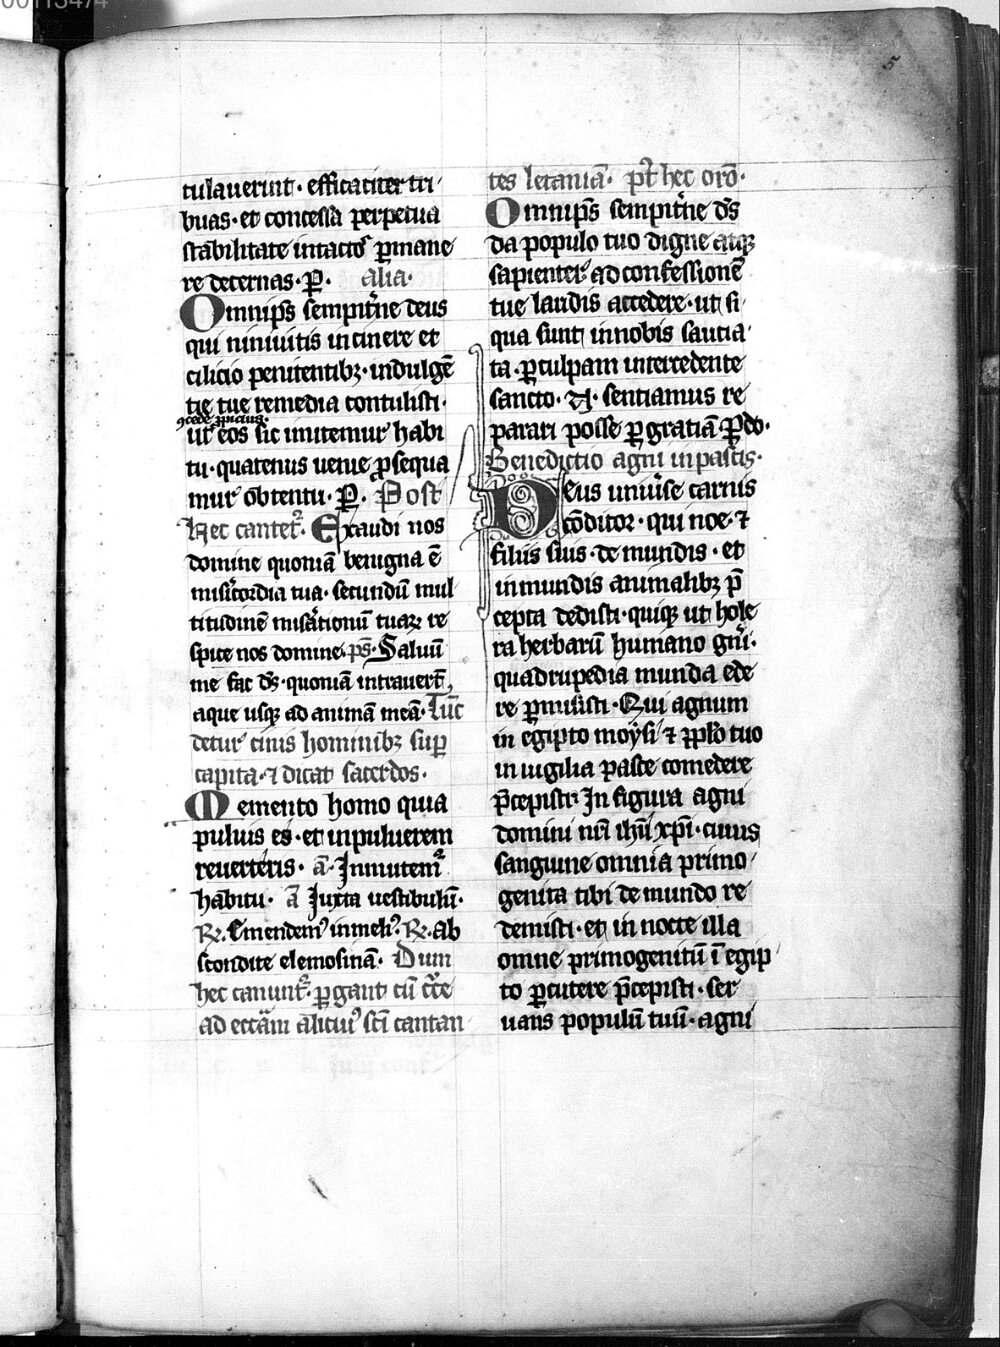 00113474
5
tulauerunt · efficaciter tri
buas · et concessa perpetua
stabilitate intactos p̱mane
re decernas · P̱. alia·
Omnip̄s sempit̾ne deus
qui niniuitis in cinere et
cilicio penitentibꝫ · indulgē
tie tue remedia contulisti·
ꝯcede ꝓpicius·
ut eos sic imitemur habi
tu · quatenus uenie ꝓsequa
mur obtentu · P̱. Post
hec cantet̾. Exaudi nos
domine quoniā benigna ē
mis̾icordia tua · secundū mul
titudinē mis̾ationū tuaꝝ re
spice nos domine · p̄s · Saluū
me fac d̄s · quoniā intrauert̄,
aque usqꝫ ad animā meā · Tūc
detur cinis hominibꝫ sup̱
capita · ⁊ dicat sacerdos·
Memento homo quia
puluis es · et in puluerem
reuerteris · ā · Inmutem̾
habitu · ā Iuxta uestibulū·
℞. Emendem᾽ in meli᾽. ℞. Ab
scondite elemosinā · Dum
hec canunt̾ · p̱gant cū c̄ce
ad ecc̄am alicui᾽ sc̄i cantan
tes letaniā · pt̄ hec orō·
Omnip̄s sempit̾ne d̄s
da populo tuo digne atqꝫ
sapienter ad confessionē
tue laudis accedere · ut si
qua sunt in nobis saucia
ta · p̱ culpam intercedente
sancto · N · sentiamus re
parari posse p̱ gratiā · P̱ do·
Benedictio agni in pascis·
Deus uniu̾se carnis
cōditor · qui noe · ⁊
filiis suis · de mundis · et
inmundis animalibꝫ p̄
cepta dedisti · quiqꝫ ut hole
ra herbarū humano gn̄i·
quadrupedia munda ede
re p̱misisti · Qui agnum
in egipto moysi ⁊ pp̄lo tuo
in uigilia pasce comedere
p̄cepisti · In figura agni
domini nr̄i ihū xp̄i · cuius
sanguine omnia primo
genita tibi de mundo re
demisti · et in nocte illa
omne primogenitū ī egip
to p̱cutere p̄cepisti · ser
uans populū tuū · agni